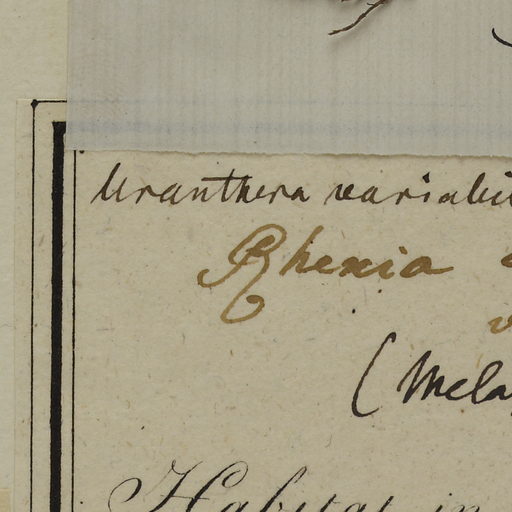 Uranthera variabil
Rhexia
(Mela
Habitat in